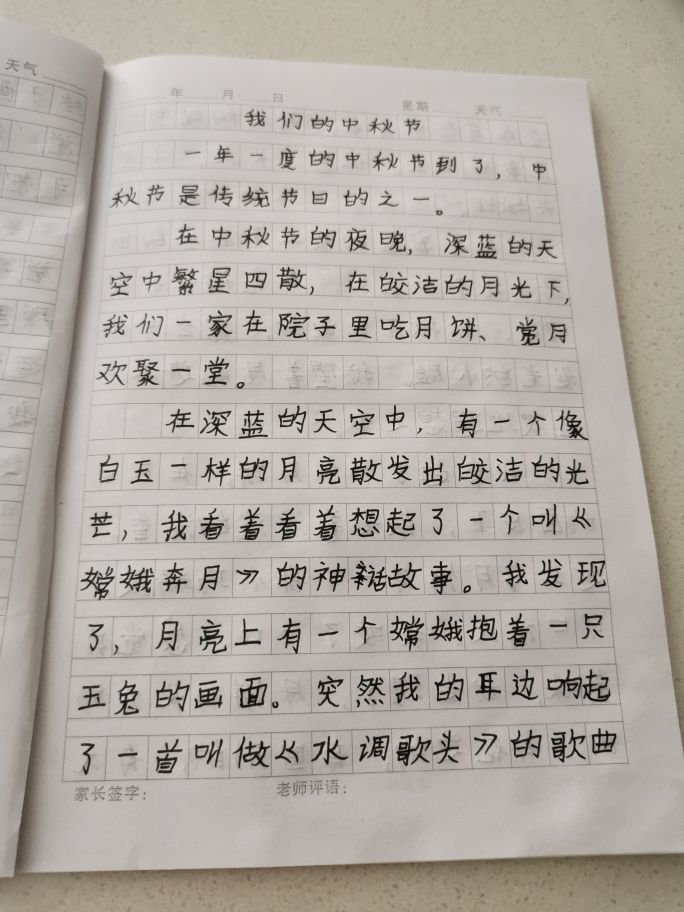 天气
年 月 日 星期 天气
我们的中秋节
一年一度的中秋节到了，中
秋节是传统节日的之一。
在中秋节的夜晚，深蓝的天
空中繁星四散，在皎洁的月光下，
我们一家在院子里吃月饼、觉月
欢聚一堂。
在深蓝的天空中，有一个像
白玉一样的月亮散发出皎洁的光
芒，我看着看着想起了一个叫《
嫦娥奔月》的神话故事。我发现
了，月亮上有一个嫦娥抱着一只
玉兔的画面。突然我的耳边响起
了一首叫做《水调歌头》的歌曲
家长签字： 老师评语：